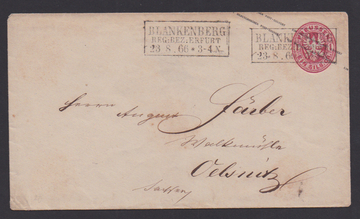 BLANKENBERG
REG:BEZ.ERFURT
23 8 66 * 3-4 N.
BLANKENBERG
REG:BEZ.ERFURT
23 8 66
Herrn
August Färber
Walkmühle
Oelsnitz
Sachsen